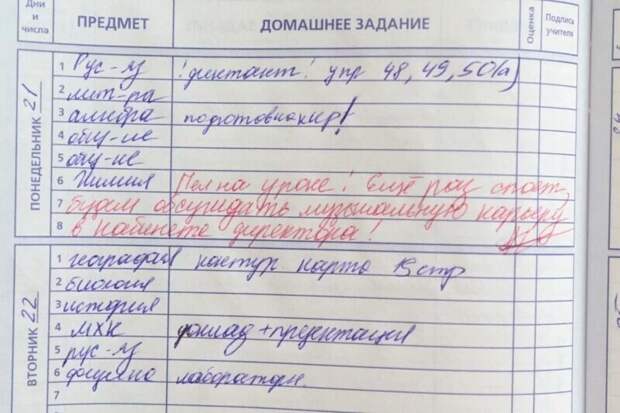 Дни и числа ПРЕДМЕТ ДОМАШНЕЕ ЗАДАНИЕ Оценка Подпись учителя
ПОНЕДЕЛЬНИК 21
1 Рус-яз !диктант! упр 48, 49, 50(а)
2 лит-ра
3 алгебра подготовка к кр!
4 общ-ие
5 общ-ие
6 Химия Пел на уроке! Ещё раз споёт,
7 будем обсуждать музыкальную карьеру
8 в кабинете директора!
ВТОРНИК 22
1 география контур карта
2 биология
3 история
4 МХК доклад + презентация
5 рус-яз
6 физика лаборатори.
7